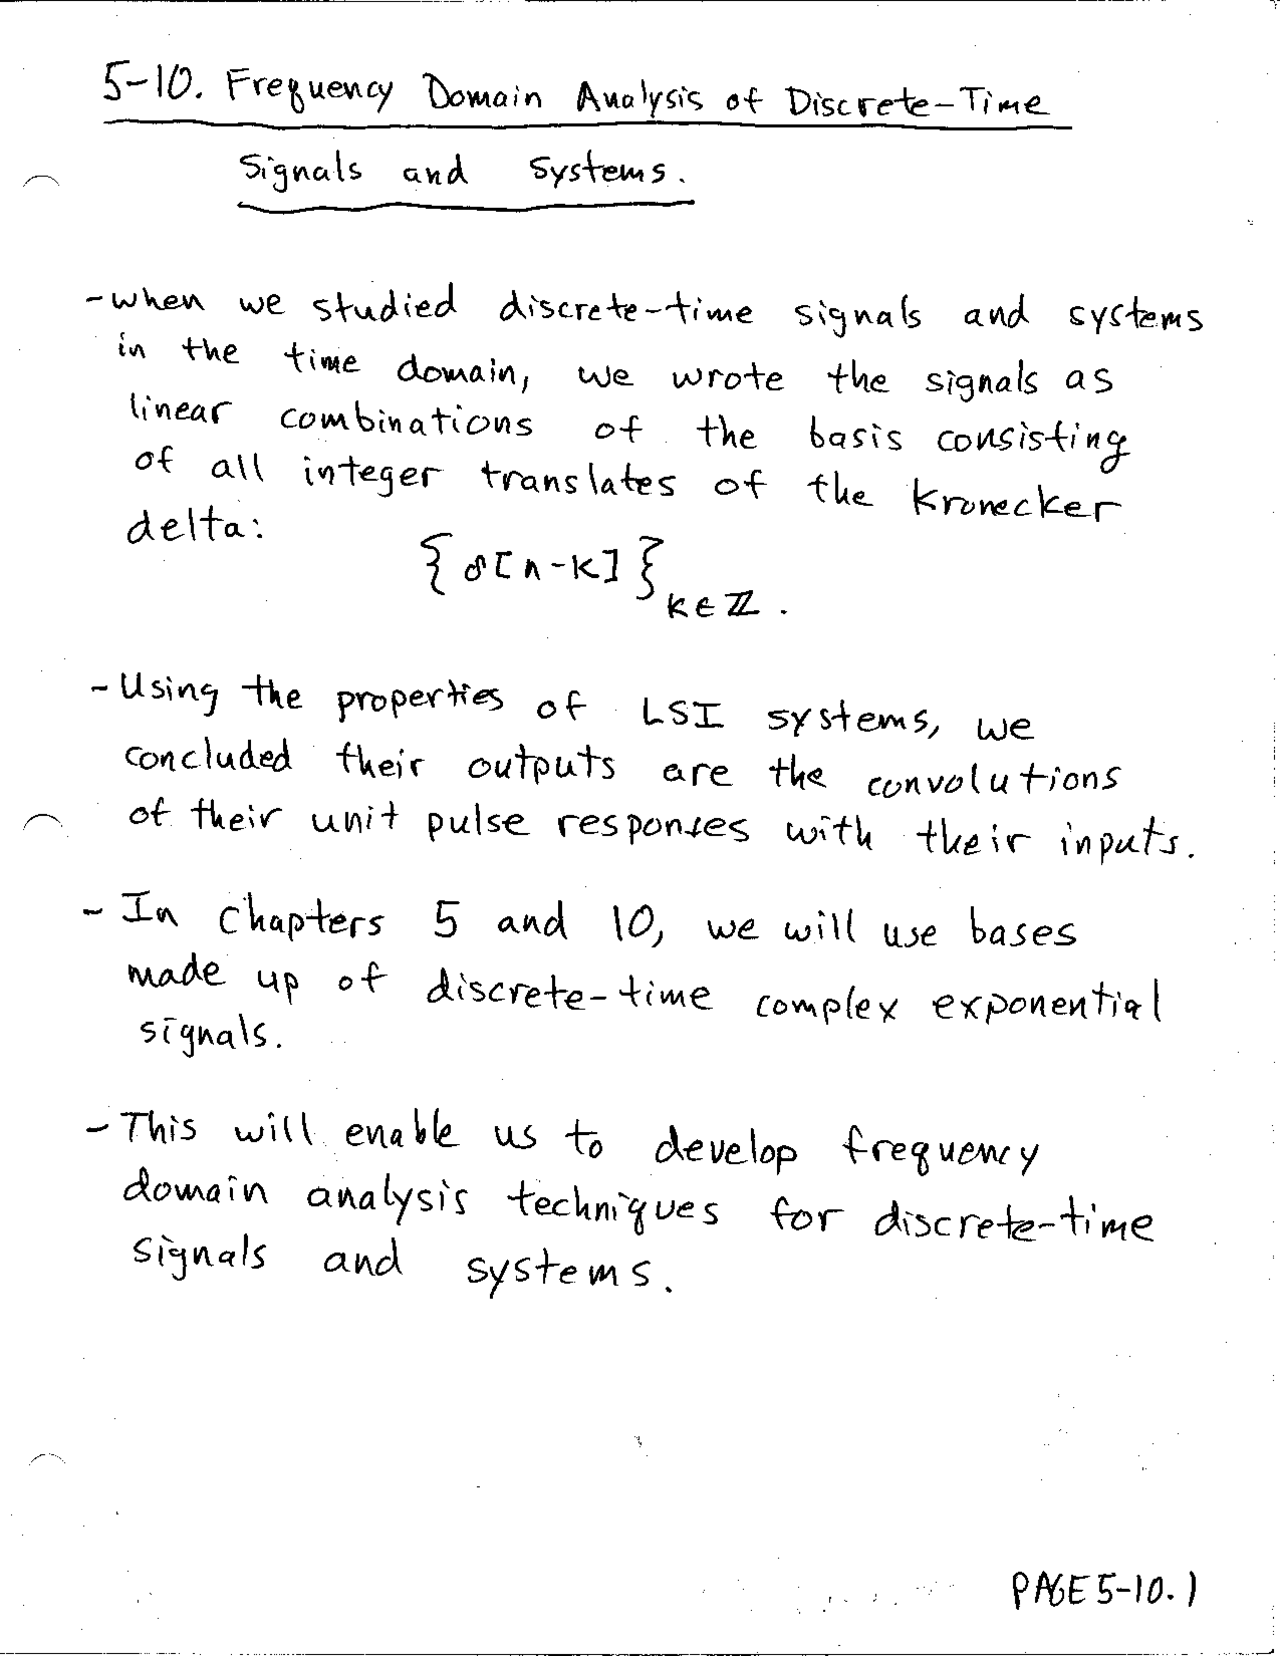 5-10. Frequency Domain Analysis of Discrete-Time
Signals and Systems.
- when we studied discrete-time signals and systems
in the time domain, we wrote the signals as
linear combinations of the basis consisting
of all integer translates of the Kronecker
delta:
{δ[n-k]}k∈ℤ.
- Using the properties of LSI systems, we
concluded their outputs are the convolutions
of their unit pulse responses with their inputs.
- In Chapters 5 and 10, we will use bases
made up of discrete-time complex exponential
signals.
- This will enable us to develop frequency
domain analysis techniques for discrete-time
signals and systems.
PAGE 5-10.1